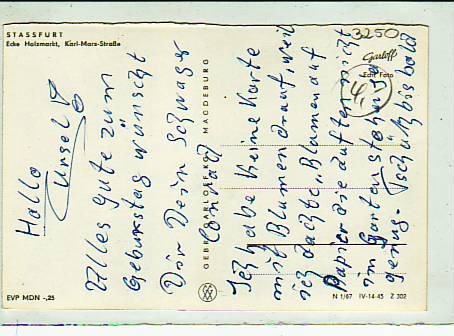 STASSFURT
Ecke Holzmarkt, Karl-Marx-Straße
3250
Garloff
Echt Foto
Hallo
Ursel!
Alles gute zum
Geburstag wünscht
Dir Dein Schwager
Conrad
GEBR. GARLOFF KG MAGDEBURG
Ich abe keine Karte
mit Blumen drauf, weil
ich dachte, Blumen auf
Papier die duften nicht
im Garten stehn
genug. Tschüß bis bald
EVP MDN -,25
N 1/67 IV-14-45 Z 302